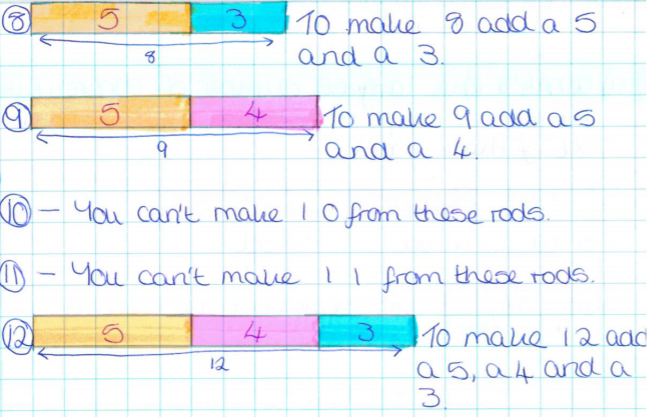 8 5 3 To make 8 add a 5
8 and a 3.
9 5 4 To make 9 add a 5
9 and a 4.
10 - You can't make 10 from these rods.
11 - You can't make 11 from these rods.
12 5 4 3 To make 12 add
12 a 5, a 4 and a
3.